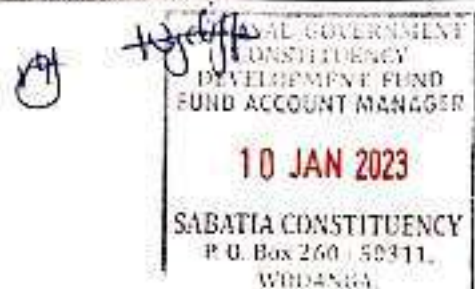 Wycliffe
NATIONAL GOVERNMENT
CONSTITUENCY
DEVELOPMENT FUND
FUND ACCOUNT MANAGER
10 JAN 2023
SABATIA CONSTITUENCY
P. O. Box 260 - 50311,
WODANGA.